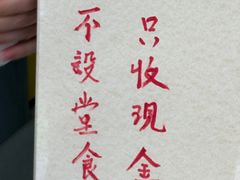 只收現金
不設堂食